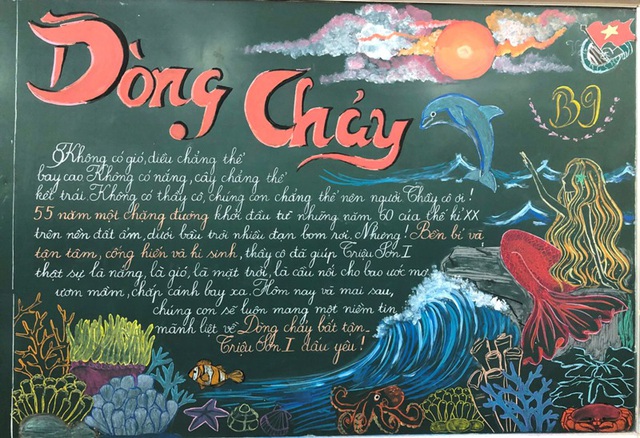 Dòng Chảy
B9
Không có gió, diều chẳng thể
bay cao. Không có nắng, cây chẳng thể
kết trái. Không có thầy cô, chúng con chẳng thể nên người. Thầy cô ơi!
55 năm một chặng đường khởi đầu từ những năm 60 của thế kỉ XX
trên nền đất ấm, dưới bầu trời nhiều đạn bom rơi. Nhưng! Bền bỉ và
tận tâm, cống hiến và hi sinh, thầy cô đã giúp Triệu Sơn I
thật sự là nắng, là gió, là mặt trời, là cầu nối cho bao ước mơ
ươm mầm, chắp cánh bay xa. Hôm nay và mai sau,
chúng con sẽ luôn mang một niềm tin
mãnh liệt về Dòng chảy bất tận_
Triệu Sơn I dấu yêu!